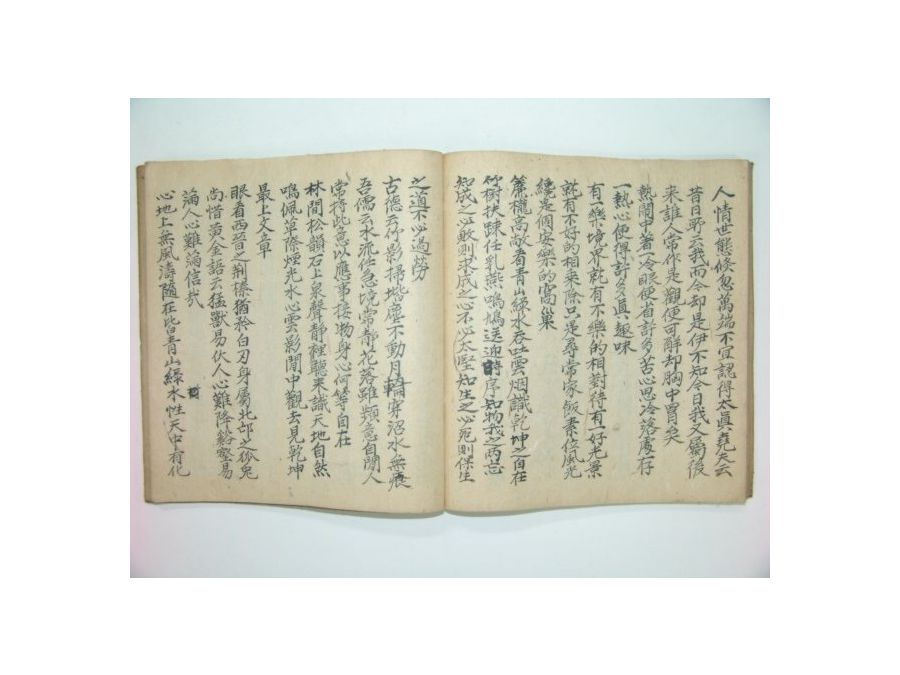 人情世態倏忽萬端不宜認得太眞堯夫云
昔日所云我而今却是伊不知今日我又屬後
來誰人常作是觀便可解却胸中罥矣
熱鬧中著一冷眼便省許多苦心思冷落處存
一熱心便得許多眞趣味
有一樂境界就有不樂的相對待有一好光景
就有不好的相乘除只是尋常家飯素位風光
纔是個安樂的窩巢
簾櫳高敞看青山綠水吞吐雲烟識乾坤之自在
竹樹扶疎任乳燕鳴鳩送迎時序知物我之兩忘
知成之必敗則求成之心不必太堅知生之必死則保生
之道不必過勞
古德云竹影掃堦塵不動月輪穿沼水無痕
吾儒云水流任急境常靜花落雖頻意自閒人
常持此意以應事接物身心何等自在
林間松韻石上泉聲靜裡聽来識天地自然
鳴佩草際煙光水心雲影閒中觀去見乾坤
最上文章
眼看西晉之荊榛猶矜白刃身屬北邙之狐兔
尚惜黃金語云猛獸易伏人心難降谿壑易
滿人心難滿信哉
心地上無風濤隨在皆青山綠水性天中有化